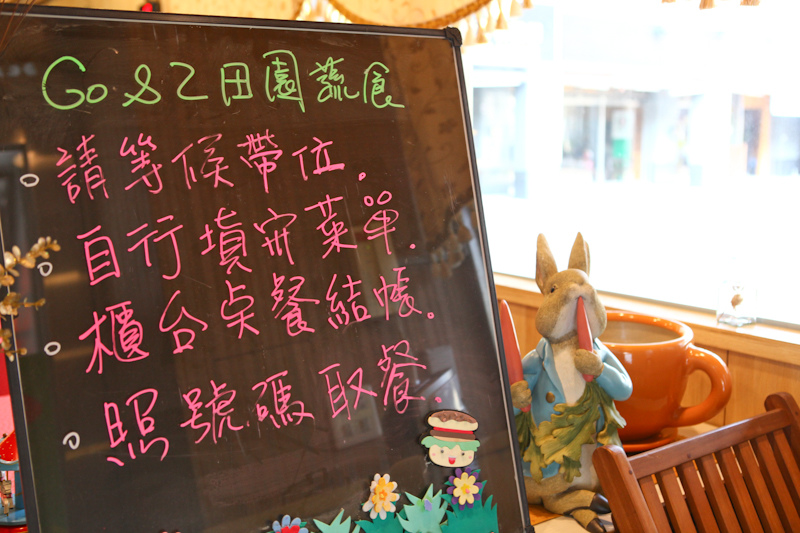 Go & Z 田園蔬食
。請等候帶位.
。自行填寫菜單.
。櫃台点餐結帳.
。照號碼取餐.